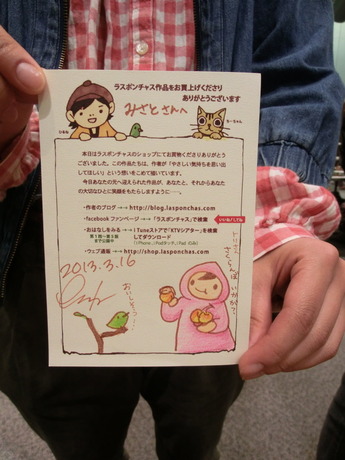 ラスポンチャス作品をお買上げくださり
ありがとうございます
みさとさんへ
本日はラスポンチャスのショップにてお買物くださりありがとう
ございました。この作品たちは、何か「やさしい気持ちを思い出
してほしい」という想いをこめて描いています。
今日あなたの元へ迎えられた作品が、あなたと、それからあなた
の大切なひとに笑顔をもたらしますように…
・作者のブログ →→ http://blog.lasponchas.com
・facebook ファンページ →→「ラスポンチャス」を検索
いいね!してね
・おはなしをみる →→ iTuneストアで「KTVシアター」を検索
してダウンロード
・ウェブ通販 →→ http://shop.lasponchas.com
2013.3.16
トリさん、
さくらんぼ いかが?
おいしそう…